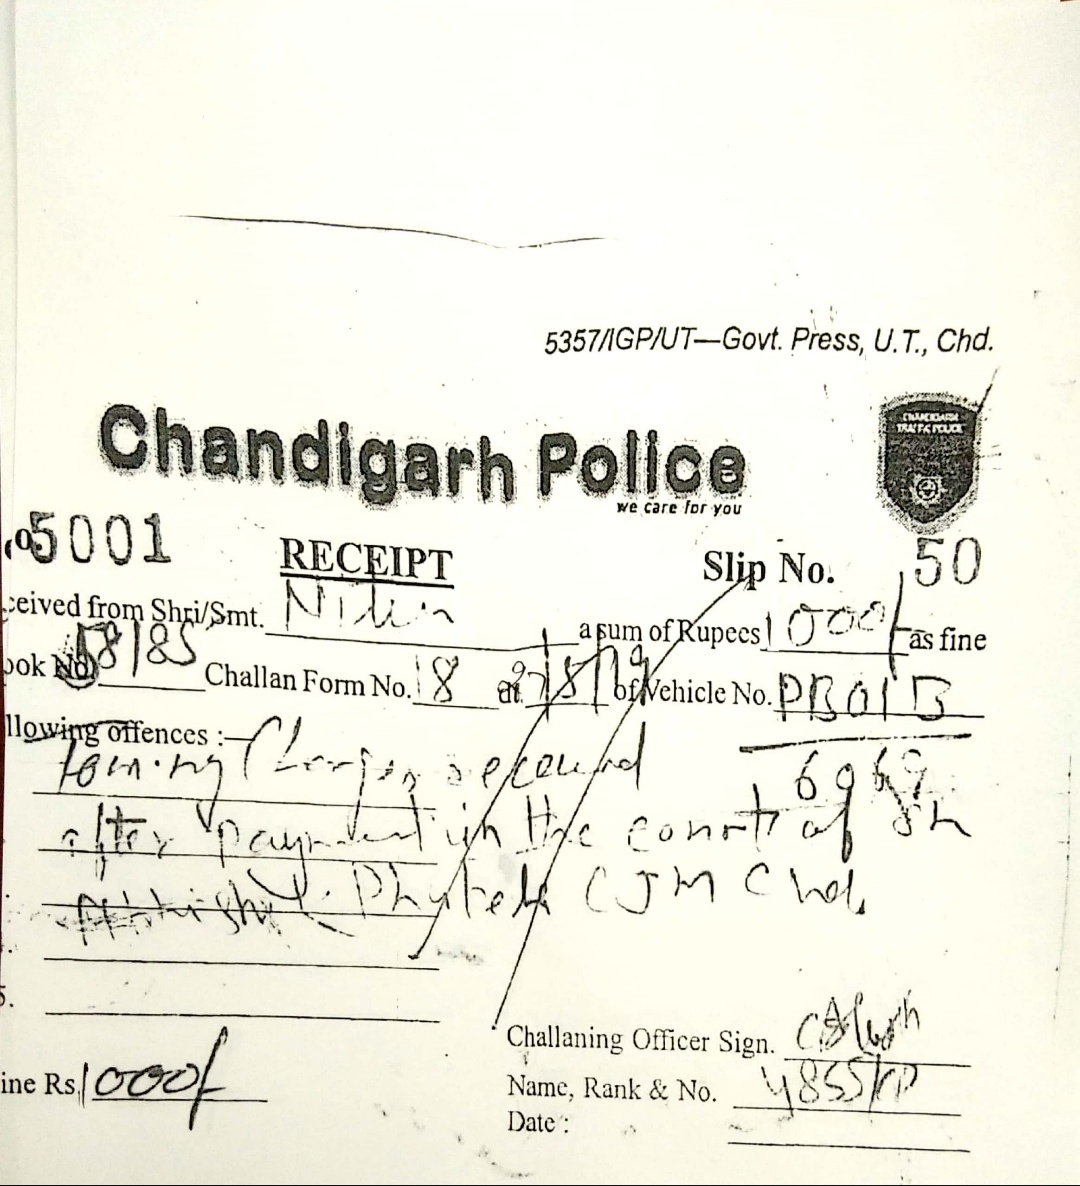 5357/IGP/UT—Govt. Press, U.T., Chd.
Chandigarh Police
we care for you
CHANDIGARH
TRAFFIC POLICE
5001
RECEIPT
Slip No. 50
ceived from Shri/Smt. Nitin a sum of Rupees 1000/ as fine
ook No. 58185 Challan Form No. 18 of Vehicle No. PB01B
6969
llowing offences :—
Towing Charges received
after payment in the court of Sh
Abhishek Phutela CJM Chd.
5.
Challaning Officer Sign.
ine Rs. 1000/
Name, Rank & No. 4855/CP
Date :